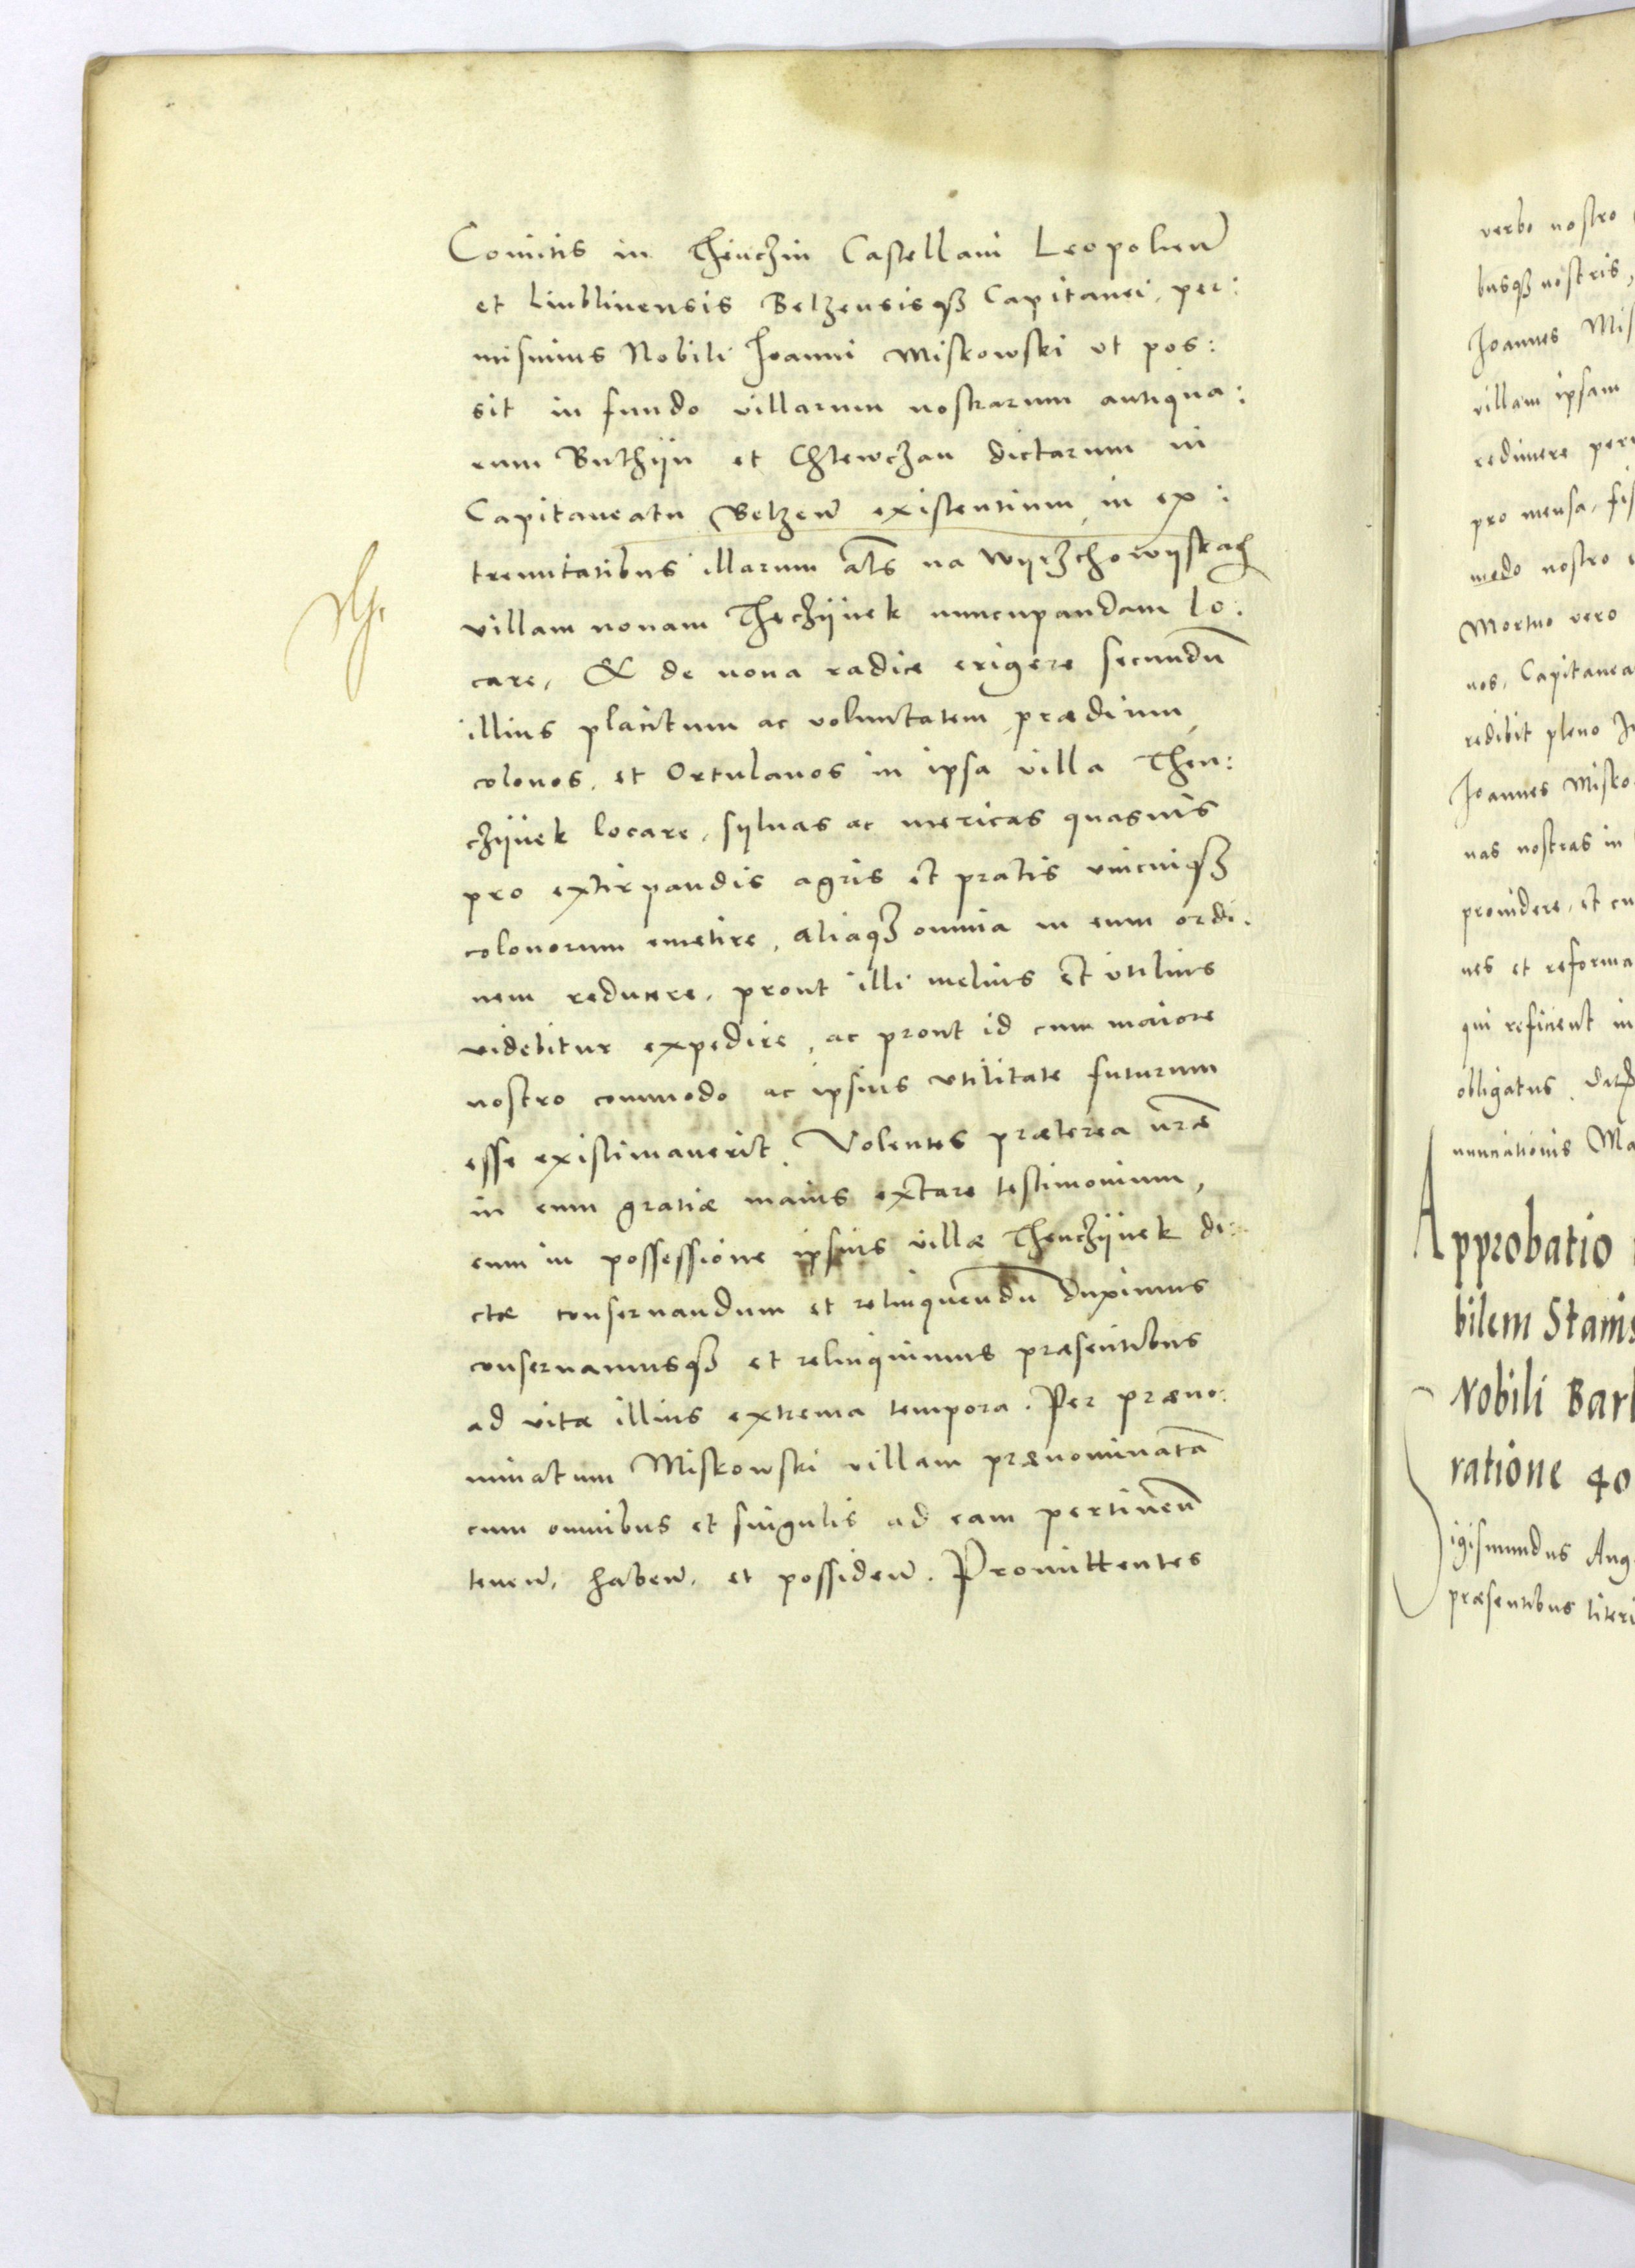 Comitis in Thenczin Castellani Leopolien̄
et Liublinensis Belzensisqꝫ Capitanei, per:
misimus Nobili Joanni Miskowski ut pos:
sit in fundo villarum nostrarum antiqua:
rum Buthÿn et Chlewczan dictarum in
Capitaneatu Belzen̄ existentium, in ex:
tremitatibus illarum al̄s na Wÿrzchowÿskach
villam nouam Theczÿnek nuncupandam lo:
care, & de noua radice erigere secundū
illius placitum ac voluntatem prædium,
colonos, et Ortulanos in ipsa villa Then:
czÿnek locare, sÿluas ac mericas quasuis
pro extirpandis agris et pratis vnicuiqꝫ
colonorum emetire, aliaqꝫ omnia in eum ordi:
nem reducere, prout illi melius et vtilius
videbitur expedire, ac prout id cum maiore
nostro commodo ac ipsius vtilitate futurum
esse existimauerit. Volentes præterea n̄ræ
in eum gratiæ maius extare testimonium,
eum in possessione ipsius villæ Thenczÿnek di:
ctæ conseruandum et relinquendū duximus
conseruamusqꝫ et relinquimus præsentibus
ad vitæ illius extrema tempora. Per præno:
minatum Miskowski villam prænominatā
cum omnibus et singulis ad eam pertinen̄
tenen̄, haben̄, et possiden̄. Promittentes
verbo nostro
busqꝫ nostris,
Joannes Mis
villam ipsam
redimere per
pro mensa, fis
modo nostro
Mortuo vero
nos, Capitanea
redibit pleno Ju
Joannes Misko
nas nostras in
prouidere, et cu
nes et reforma
qui reficient in
obligatus. Dat
nunciationis Ma
Approbatio
bilem Stanis
Nobili Barb
ratione 40
Sigismundus Aug
præsentibus literi